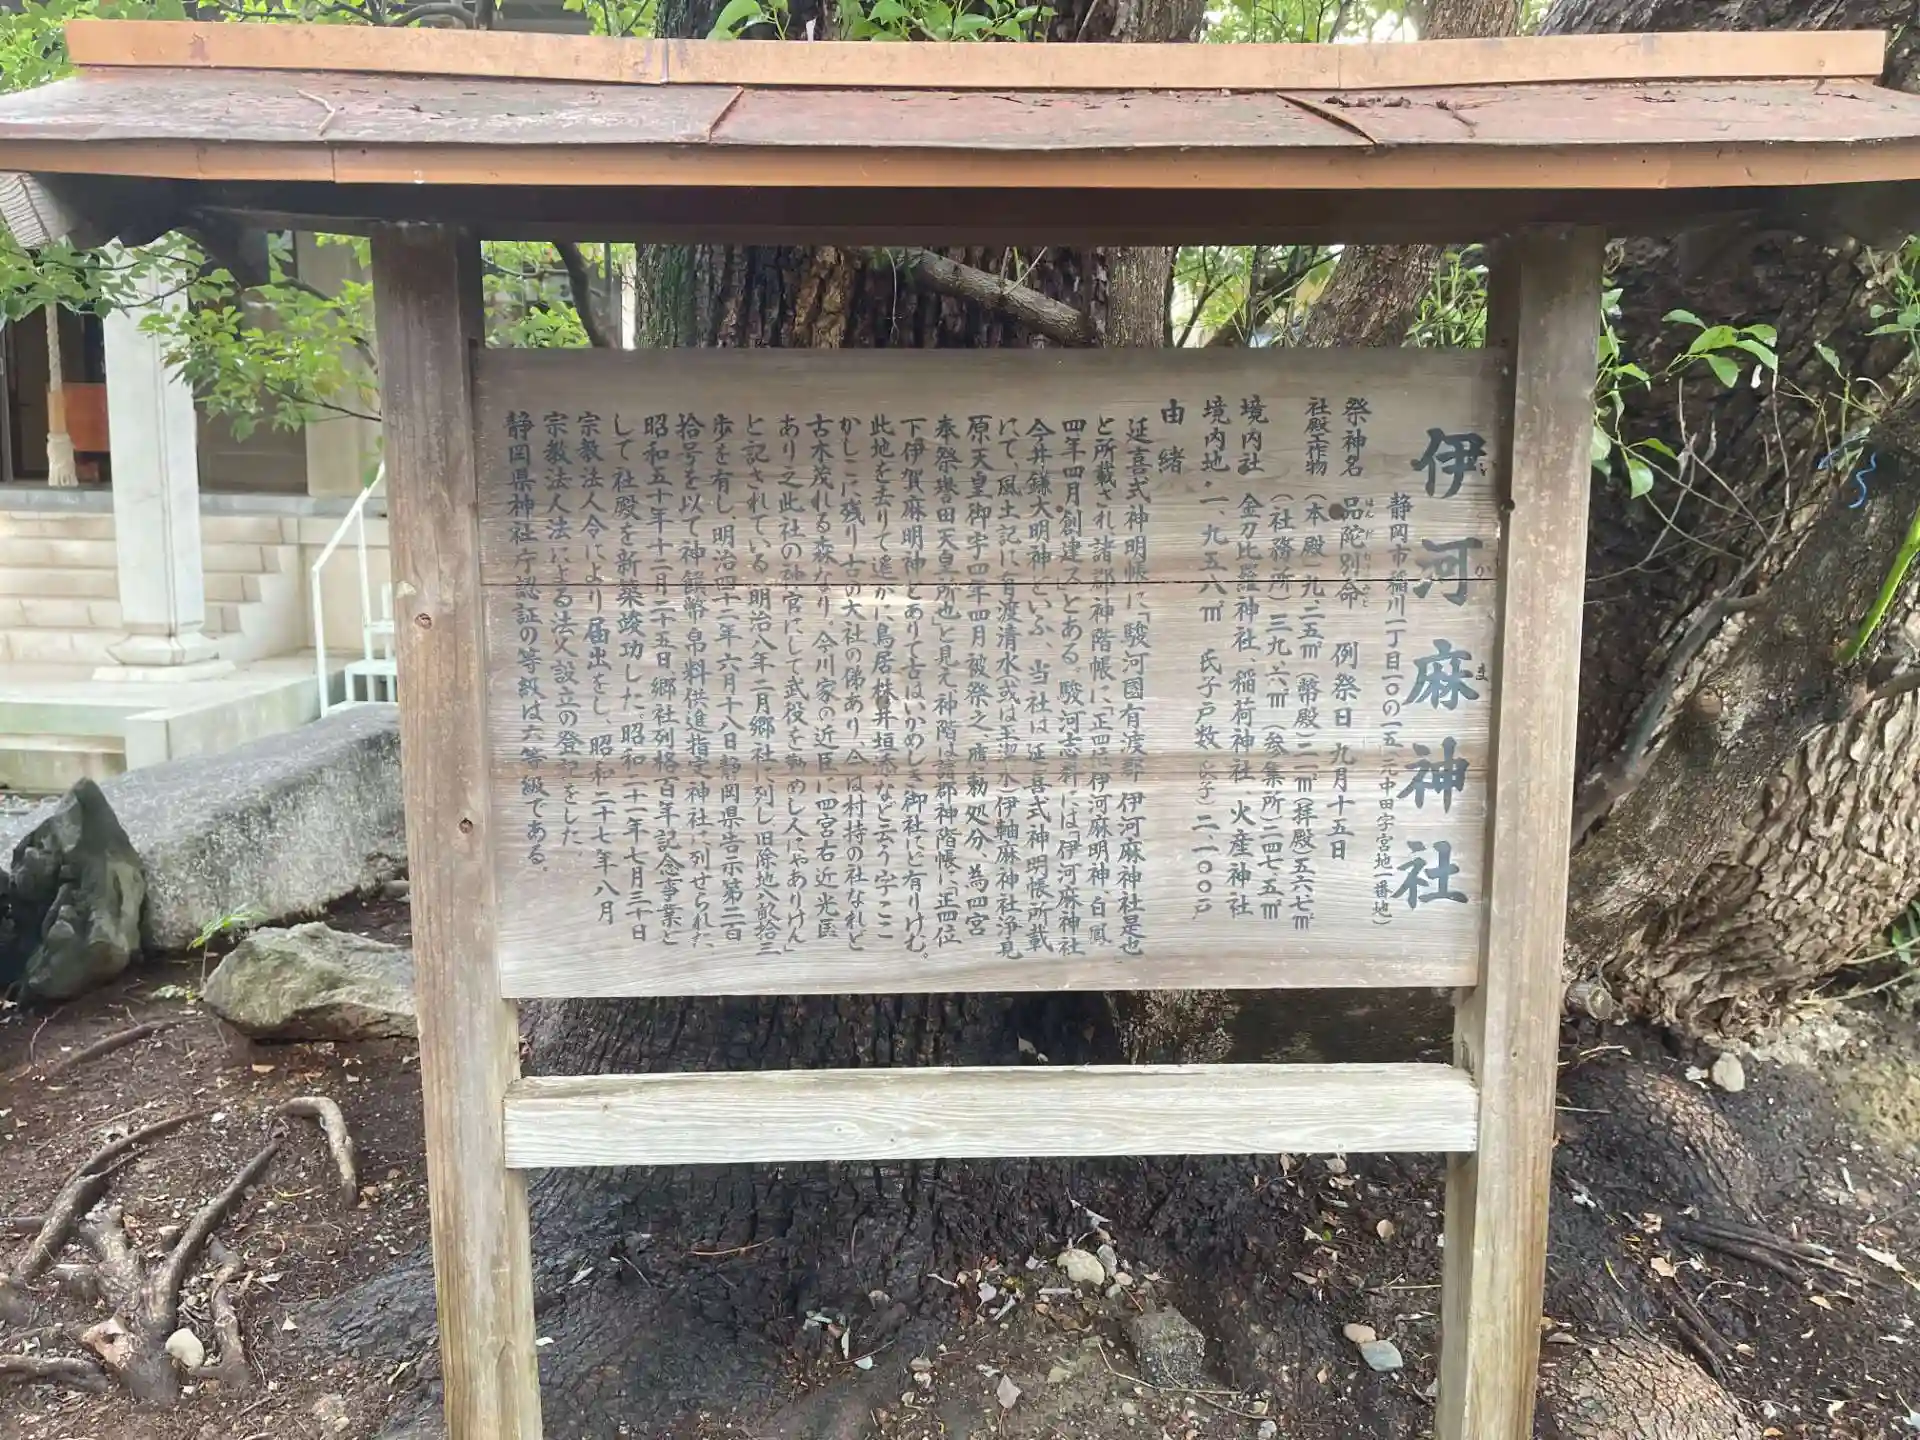 伊河麻神社
いかま
静岡市稲川一丁目一〇の一五(元中田字宮地一番地)
祭神名 品陀別命 例祭日 九月十五日
ほんだわけのみこと
社殿工作物 (本殿)九、二五㎡(幣殿)二一㎡(拝殿)五六・七㎡
(社務所)三九・六㎡(参集所)二四七・五㎡
境内社 金刀比羅神社、稲荷神社、火産神社
境内地 一、九五八㎡ 氏子戸数(氏子)二、一〇〇戸
由緒
延喜式神明帳に「駿河国有渡郡伊河麻神社是也
と所載され諸郡神階帳に「正四位伊河麻明神白鳳
四年四月創建ス」とある。駿河志料には「伊河麻神社
今井鎌大明神といふ、当社は延喜式神明帳所載
にて、風土記に有渡清水(或は玉清水)伊軸麻神社浄見
原天皇御宇四年四月被祭之 依勅処分、為四宮
奉祭誉田天皇所也」と見え神階は諸郡神階帳に「正四位
下伊賀麻明神とありて古はいかめしき御社にど有りけむ。
此地を去りて遙かに鳥居株井垣添など云う字ここ
かしこに残り古の大社の俤あり、今は村持の社なれど
古木茂れる森なり。今川家の近臣に四宮右近光匡
あり之此社の神官にして武役を勤めし人にやありけん」
と記されている。明治八年二月郷社に列し旧除地八畝拾三
歩を有し、明治四十一年六月十八日静岡県告示第二百
拾号を以て神饌幣帛料供進指定神社に列せられた
昭和五十年十二月二十五日郷社列格百年記念事業と
して社殿を新築竣功した。昭和二十一年七月三十日
宗教法人令により届出をし、昭和二十七年八月
宗教法人法による法人設立の登記をした。
静岡県神社庁認証の等級は六等級である。